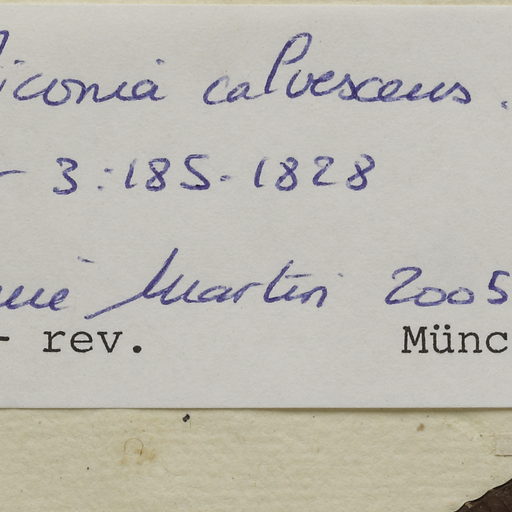 iconia calvescens.
3:185. 1828
Martin 2005
rev. Münc